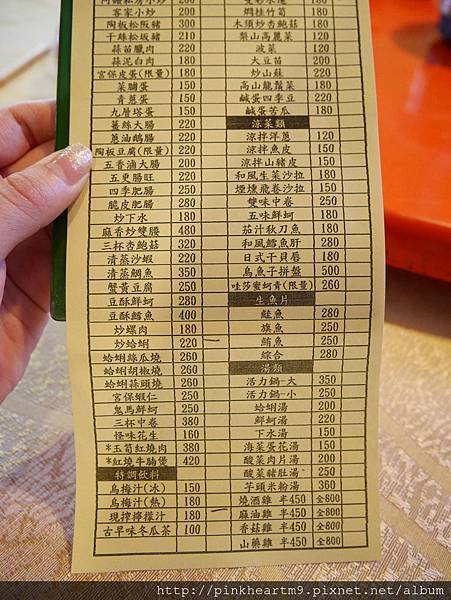 客家小炒 200
陶板松阪豬 300
干絲松坂豬 210
蒜苗臘肉 220
蒜泥白肉 180
宮保皮蛋(限量) 180
菜脯蛋 150
青蔥蛋 150
九層塔蛋 150
薑絲大腸 220
蔥油鵝腸 220
陶板豆腐(限量) 200
五香滷大腸 220
五更腸旺 220
四季肥腸 250
脆皮肥腸 280
炒下水 180
麻香炒雙腰 480
三杯杏鮑菇 320
清蒸沙蝦 220
清蒸鯛魚 350
蟹黃豆腐 250
豆酥鮮蚵 280
豆酥鱈魚 400
炒螺肉 180
炒蛤蜊 220
蛤蜊絲瓜燒 260
蛤蜊胡椒燒 260
蛤蜊蒜頭燒 260
宮保蝦仁 250
鬼馬鮮蚵 250
三杯中卷 380
怪味花生 160
*玉筍紅燒肉 380
*紅燒牛腩煲 420
特調飲料
烏梅汁(冰) 150
烏梅汁(熱) 180
現搾檸檬汁 180
古早味冬瓜茶 100
100
180
木須炒杏鮑菇 180
梨山高麗菜 180
菠菜 180
大豆苗 200
炒山蘇 220
高山龍鬚菜 180
鹹蛋四季豆 220
鹹蛋苦瓜 180
涼菜類
涼拌洋蔥 120
涼拌魚皮 150
涼拌山豬皮 150
和風生菜沙拉 180
煙燻飛卷沙拉 150
雙味中卷 250
五味鮮蚵 180
茄汁秋刀魚 180
和風鱈魚肝 280
日式干貝唇 180
烏魚子拼盤 500
哇莎蜜蚵青(限量) 260
生魚片
鮭魚 280
旗魚 250
鮪魚 250
綜合 280
湯類
活力鍋-大 350
活力鍋-小 250
蛤蜊湯 200
鮮蚵湯 220
下水湯 150
海菜蛋花湯 150
酸菜肉片湯 200
酸菜豬肚湯 250
芋頭米粉湯 360
燒酒雞 半450 全800
麻油雞 半450 全800
香菇雞 半450 全800
山藥雞 半450 全800
http://pinkheartm9.pixnet.net/album